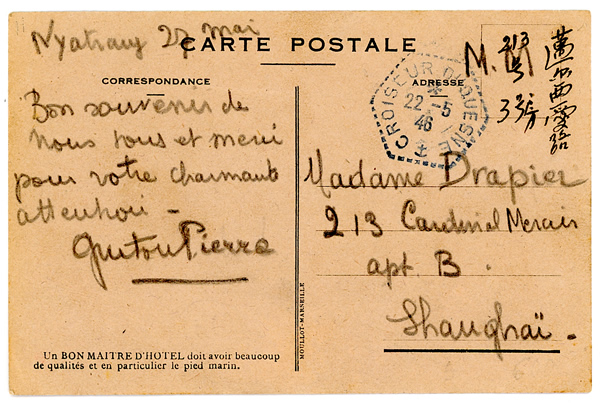 Nyatrang 22 mai
CARTE POSTALE
CORRESPONDANCE
ADRESSE
M.
213
3號
CROISEUR DUQUESNE
22 -5
46
Bon souvenir de
nous tous et merci
pour votre charmante
attention -
Pierre
Madame Drapier
213 Cardinal Mercier
apt. B.
Shanghaï -
MOULLOT-MARSEILLE
Un BON MAITRE D'HOTEL doit avoir beaucoup
de qualités et en particulier le pied marin.